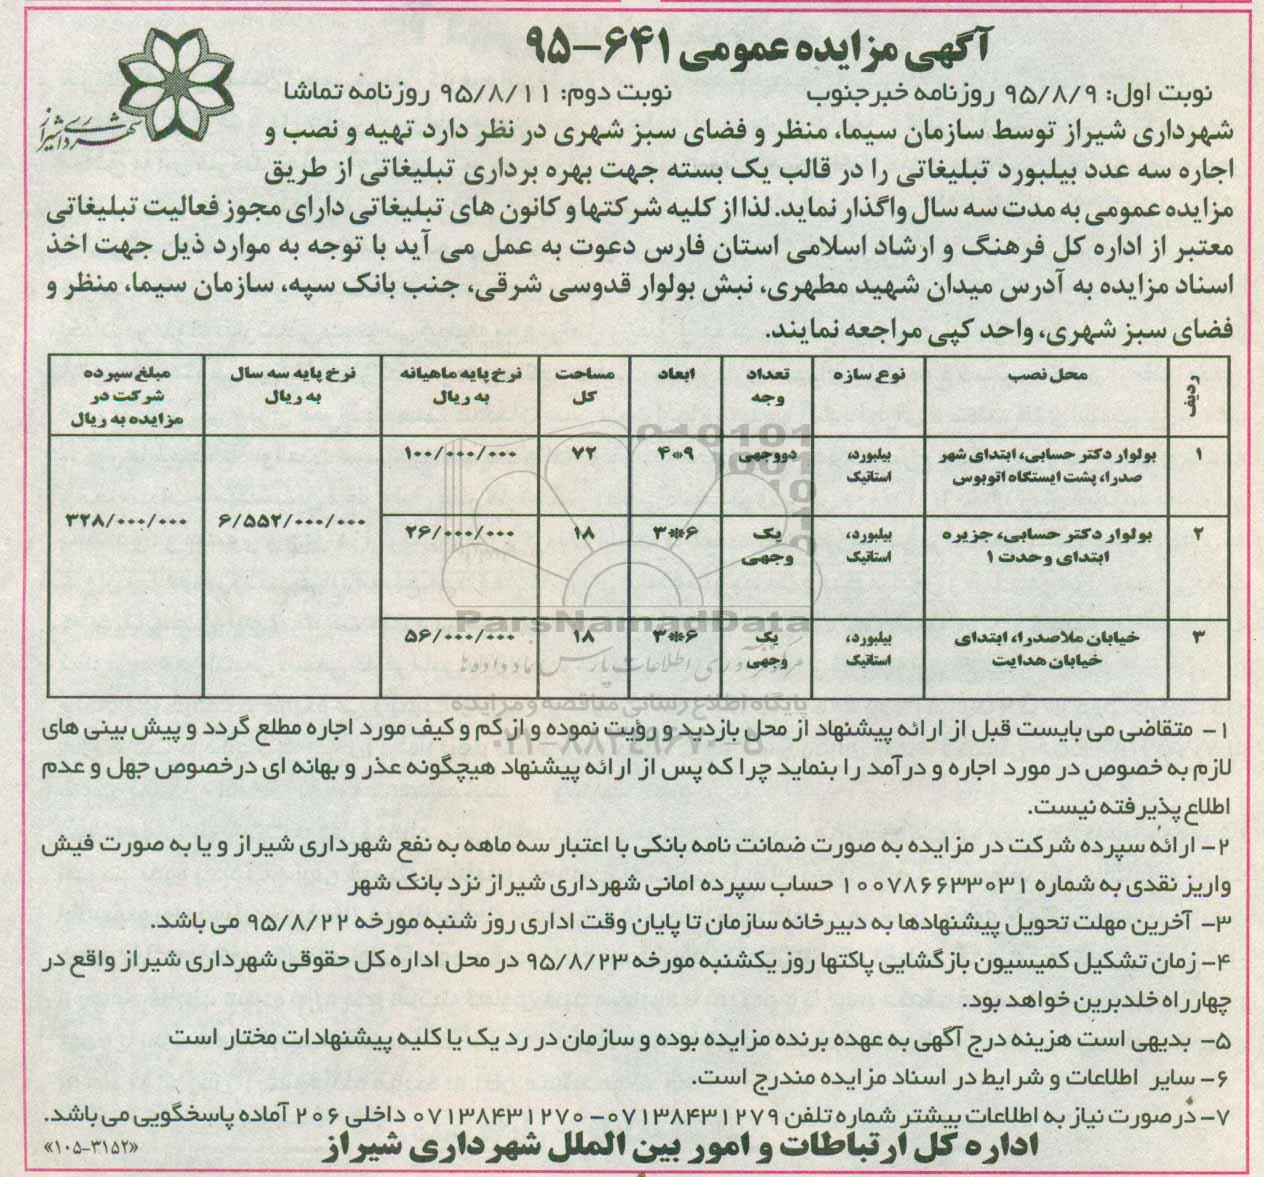 آگهی مزایده عمومی ۶۴۱-۹۵
نوبت اول: ۹۵/۸/۹ روزنامه خبرجنوب نوبت دوم: ۹۵/۸/۱۱ روزنامه تماشا
شهرداری شیراز
شهرداری شیراز توسط سازمان سیما، منظر و فضای سبز شهری در نظر دارد تهیه و نصب و
اجاره سه عدد بیلبورد تبلیغاتی را در قالب یک بسته جهت بهره برداری تبلیغاتی از طریق
مزایده عمومی به مدت سه سال واگذار نماید. لذا از کلیه شرکتها و کانون های تبلیغاتی دارای مجوز فعالیت تبلیغاتی
معتبر از اداره کل فرهنگ و ارشاد اسلامی استان فارس دعوت به عمل می آید با توجه به موارد ذیل جهت اخذ
اسناد مزایده به آدرس میدان شهید مطهری، نبش بولوار قدوسی شرقی، جنب بانک سپه، سازمان سیما، منظر و
فضای سبز شهری، واحد کپی مراجعه نمایند.
ردیف محل نصب نوع سازه تعداد وجه ابعاد مساحت کل نرخ پایه ماهیانه به ریال نرخ پایه سه سال به ریال مبلغ سپرده شرکت در مزایده به ریال
۱ بولوار دکتر حسابی، ابتدای شهر صدرا، پشت ایستگاه اتوبوس بیلبورد، استاتیک دووجهی ۹*۴ ۷۲ ۱۰۰/۰۰۰/۰۰۰
۲ بولوار دکتر حسابی، جزیره ابتدای وحدت ۱ بیلبورد، استاتیک یک وجهی ۶**۳ ۱۸ ۲۶/۰۰۰/۰۰۰ ۶/۵۵۲/۰۰۰/۰۰۰ ۳۲۸/۰۰۰/۰۰۰
۳ خیابان ملاصدرا، ابتدای خیابان هدایت بیلبورد، استاتیک یک وجهی ۶**۳ ۱۸ ۵۶/۰۰۰/۰۰۰
ParsNamadData
مرکز فرآوری اطلاعات پارس نماد داده ها
پایگاه اطلاع رسانی مناقصه و مزایده
۰۲۱-۸۸۳۴۹۶۷۰-۵
۱- متقاضی می بایست قبل از ارائه پیشنهاد از محل بازدید و رؤیت نموده و از کم و کیف مورد اجاره مطلع گردد و پیش بینی های
لازم به خصوص در مورد اجاره و درآمد را بنماید چرا که پس از ارائه پیشنهاد هیچگونه عذر و بهانه ای درخصوص جهل و عدم
اطلاع پذیرفته نیست.
۲- ارائه سپرده شرکت در مزایده به صورت ضمانت نامه بانکی با اعتبار سه ماهه به نفع شهرداری شیراز و یا به صورت فیش
واریز نقدی به شماره ۱۰۰۷۸۶۶۳۳۰۳۱ حساب سپرده امانی شهرداری شیراز نزد بانک شهر
۳- آخرین مهلت تحویل پیشنهادها به دبیرخانه سازمان تا پایان وقت اداری روز شنبه مورخه ۹۵/۸/۲۲ می باشد.
۴- زمان تشکیل کمیسیون بازگشایی پاکتها روز یکشنبه مورخه ۹۵/۸/۲۳ در محل اداره کل حقوقی شهرداری شیراز واقع در
چهارراه خلدبرین خواهد بود.
۵- بدیهی است هزینه درج آگهی به عهده برنده مزایده بوده و سازمان در رد یک یا کلیه پیشنهادات مختار است
۶- سایر اطلاعات و شرایط در اسناد مزایده مندرج است.
۷- درصورت نیاز به اطلاعات بیشتر شماره تلفن ۰۷۱۳۸۴۳۱۲۷۹- ۰۷۱۳۸۴۳۱۲۷۰ داخلی ۲۰۶ آماده پاسخگویی می باشد.
اداره کل ارتباطات و امور بین الملل شهرداری شیراز
«۱۰۵-۳۱۵۲»